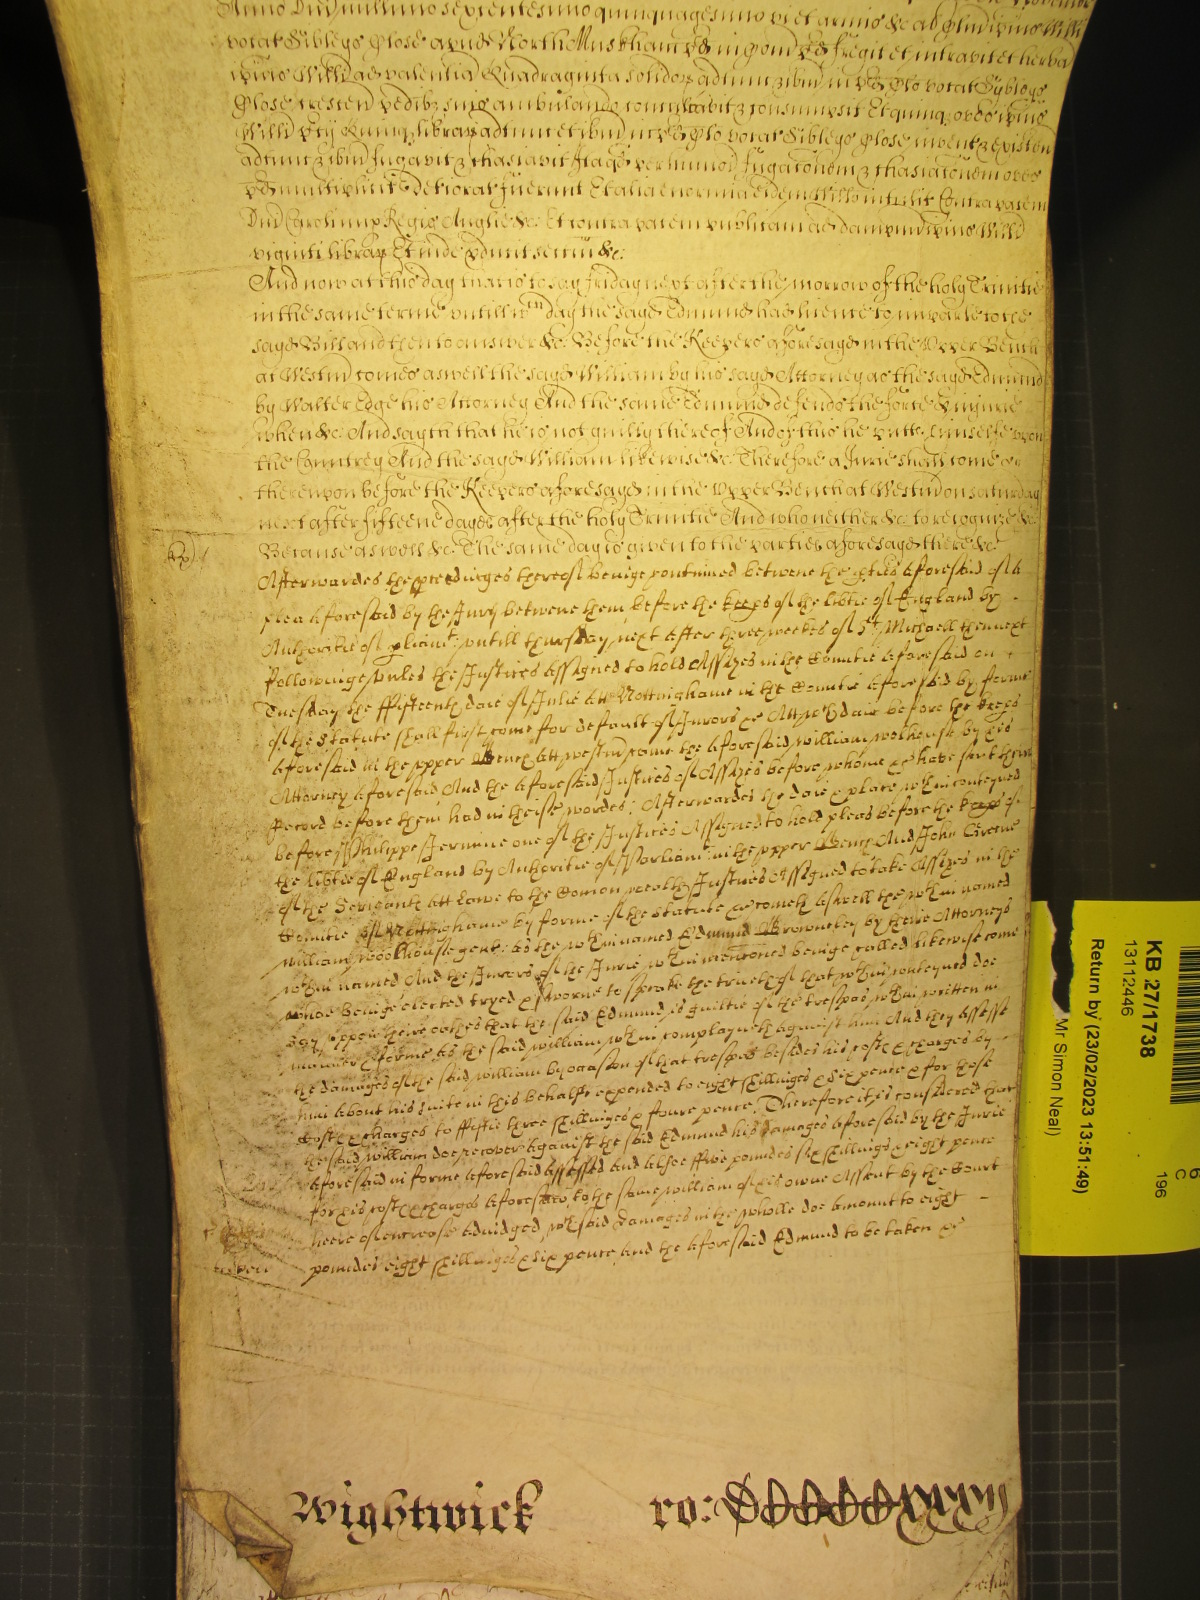 Anno Dñi millimo sexcentesimo quinquagesimo vi et armis &c
vocat Sibleys Close apud North Muskham in Com fregit et intravit et herba
ipius Willi ad valentia Quadraginta solidoȝ adtunc ibm in Clo vocat Sybleys
Close crescen pedibȝ suis ambulando conculcavit & consumpsit Et quinqȝ oves ipius
Willi Quinqȝ libraȝ adtunc et ibm in Clo vocat Sibleys Close invent & existen
adtunc & ibm fugavit & chasiavit fugacõnem & chasiacõnem oves
multiplicit deteriorat fuerunt Et alia enormia eidem Willo intulit Contra pacem
Dñi Regis Anglie &c Et contra pacem publicam ad dampnũ ipius Willi
viginti libraȝ Et inde pducit sectã &c:
And now at this day that is to say friday next after the morrow of the holy Trinitie
in the same terme untill wch day the sayd Edmund had licence to imparle to the
sayd Bill and then to answer &c Before the Keepers aforesayd in the Upper Bench
at Westm comes aswell the sayd William by his sayd Attorney as the sayd Edmund
by Walter Edge his Attorney And the same Edmund defends the force & iniurie
when &c And sayth that he is not guilty thereof And of this he putts himselfe upon
the Countrey And the sayd William likewise &c Therefore a Jurie shall come
thereupon before the Keepers aforesayd in the Upper Bench at Westm on saturday
next after fifteene dayes after the holy Trinitie And who neither &c to recognize &c
Because aswell &c The same day is given to the parties aforesayd there &c
Afterwardes the pceedinges thereof beinge continued betwene the pties aforesaid of the
plea aforesaid by the Jury betwene them before the keeps of the libtie of England by
Authoritie of pliamt: untill thursday next after three weekes of St Michaell then next
followinge unles the Justices Assigned to hold Assizes in the Countie aforesaid on
Tuesday the ffifteenth daie of Julie att Nottinghame in the Countie aforesaid by forme
of the Statute shall first come for default of Jurors &c Att wch daie before the keeps
aforesaid in the upper Bench att westm came the aforesaid william woolhouse by his
Attorney aforesaid And the aforesaid Justices of Assizes before whome &c have sent their
Record before them had in theise wordes: Afterwardes the daie & place wthin conteyned
before Phillippe Jermine one of the Justices Assigned to hold pleas before the keeps of
the libtie of England by Authoritie of Parliamt: in the upper Bench And John Greene
of the Serigants att Lawe to the Comon wealth Justices Assigned to take Assizes in the
Countie of Nottinghame by forme of the Statute &c cometh aswell the wthin named
William woolhouse gent: as the wthin named Edmund Browneley by theire Attorneys
wthin named And the Jurors of the Jurie wthin mentioned beinge called likewise come
whoe beinge elected tryed & sworne to speake the trueth of that wthin conteyned doe
say uppon theire oathes that the said Edmund is guiltie of the trespas wthin written in
manner & forme as the said william wthin complayneth against him And they assesse
the damages of the said william by occasion of that trespas besides his costs & charges by
him about his suite in this behalfe expended to eight shillinges & six pence & for those
costs & charges to ffiftie three shillinges & foure pence. Therefore it is considered that
the said william doe recover against the said Edmund his damages aforesaid by the Jurie
aforesaid in forme aforesaid assessed and alsoe ffive poundes six shillings & eight pence
for his costs & charges aforesaid to the same william of his owne Assent by the Court
heere of encrease adiudged wch said damages in the wholle doe amount to eight
poundes eight shillinges & six pence And the aforesaid Edmund to be taken &c
Wightwick ro:
KB 27/1738
13112446
Return by (23/02/2023 13:51:49)
Mr Simon Neal)
196
C